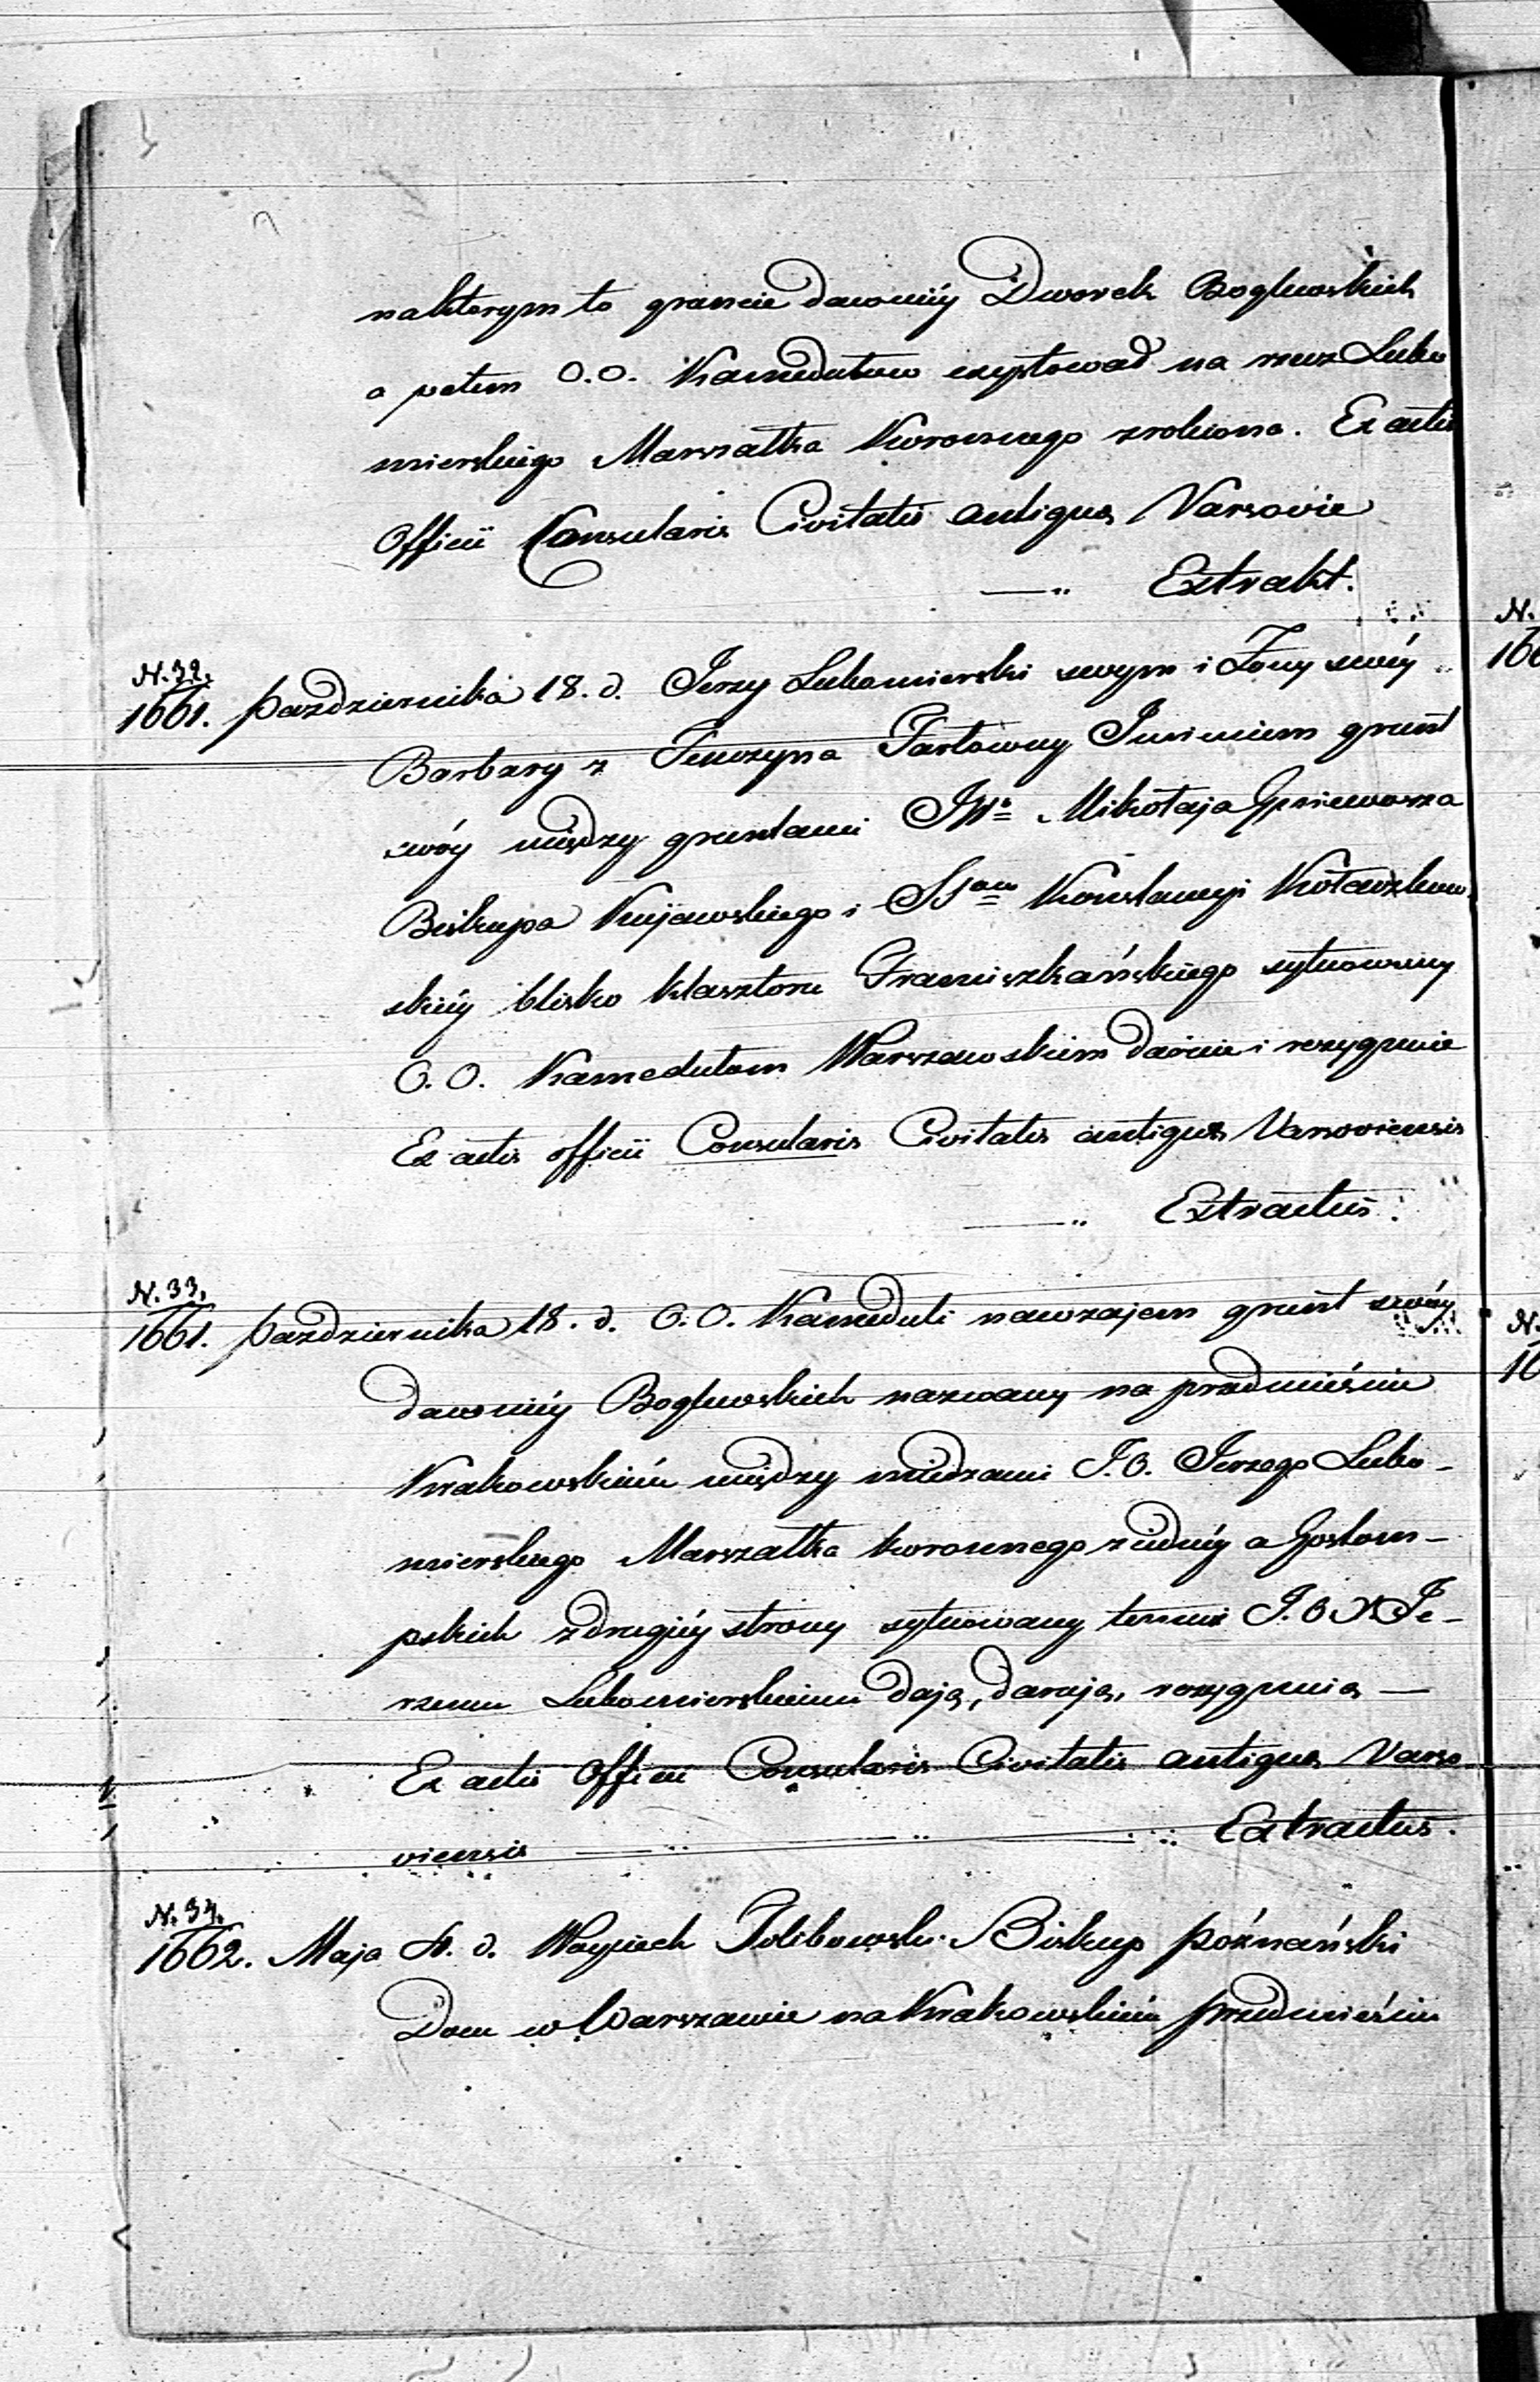 na którym to gruncie dawniéy Dworek Boglewskich
a potem O.O. Kamedułow exystował na rzecz Lubo
mierskiego Marszałka Koronnego zrobiona. Ex actis
Officii Consularis Civitatis antiqua Varsovie
Extrakt.
N. 32.
1661. października 18. d. Jerzy Lubomierski swym i Żony swéy
Barbary z Tenczyna Tarłowny Imieniem grunt
swóy między gruntami JWo Mikołaja Gniewosza
Biskupa Kujawskiego i Konstancyi
skiéy blisko klasztoru Franciszkańskiego sytuowany
O.O. Kamedułom Warszawskim daruie i rezygnuie
Ex actis officii Consularis Civitatis antiqua Varsoviensis
Extractus.
N. 33.
1661. października 18. d. O.O. Kameduli nawzajem grunt swóy
dawniéy Boglewskich nazwany na przedmieściu
Krakowskiém między miedzami J.O. Jerzego Lubo-
mierskiego Marszałka koronnego z iednéy a Gostom-
pskich z drugiéy strony sytuowany temuż J.O.X Je-
rzemu Lubomierskiemu dają, darują, rezygnuią —
Ex actis Officii Consularis Civitatis antiqua Varso
viensis Extractus.
N. 34.
1662. Maja 4. d. Woyciech Tolibowski Biskup póznański
Dom w Warszawie na Krakowskiém przedmieściu
N.
166
N.
16